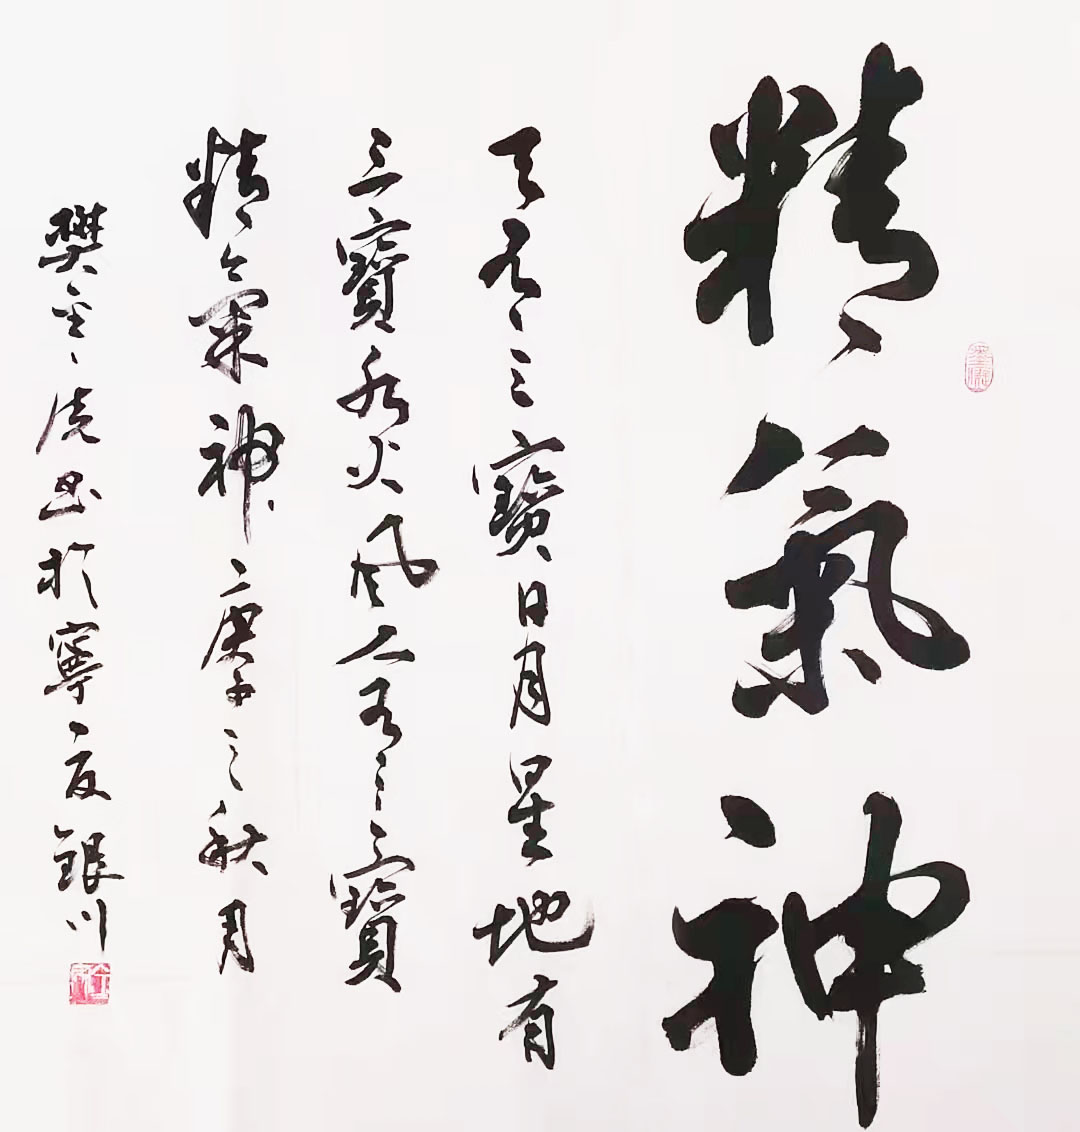 精氣神
天有三寶日月星地有
三寶水火風人有三寶
精氣神庚子之秋月
樊 虎書於寧夏銀川